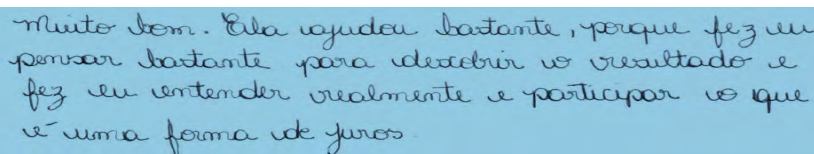 Muito bom. Ela ajudou bastante, porque fez eu
pensar bastante para descobrir o resultado e
fez eu entender realmente e participar o que
é uma forma de juros.